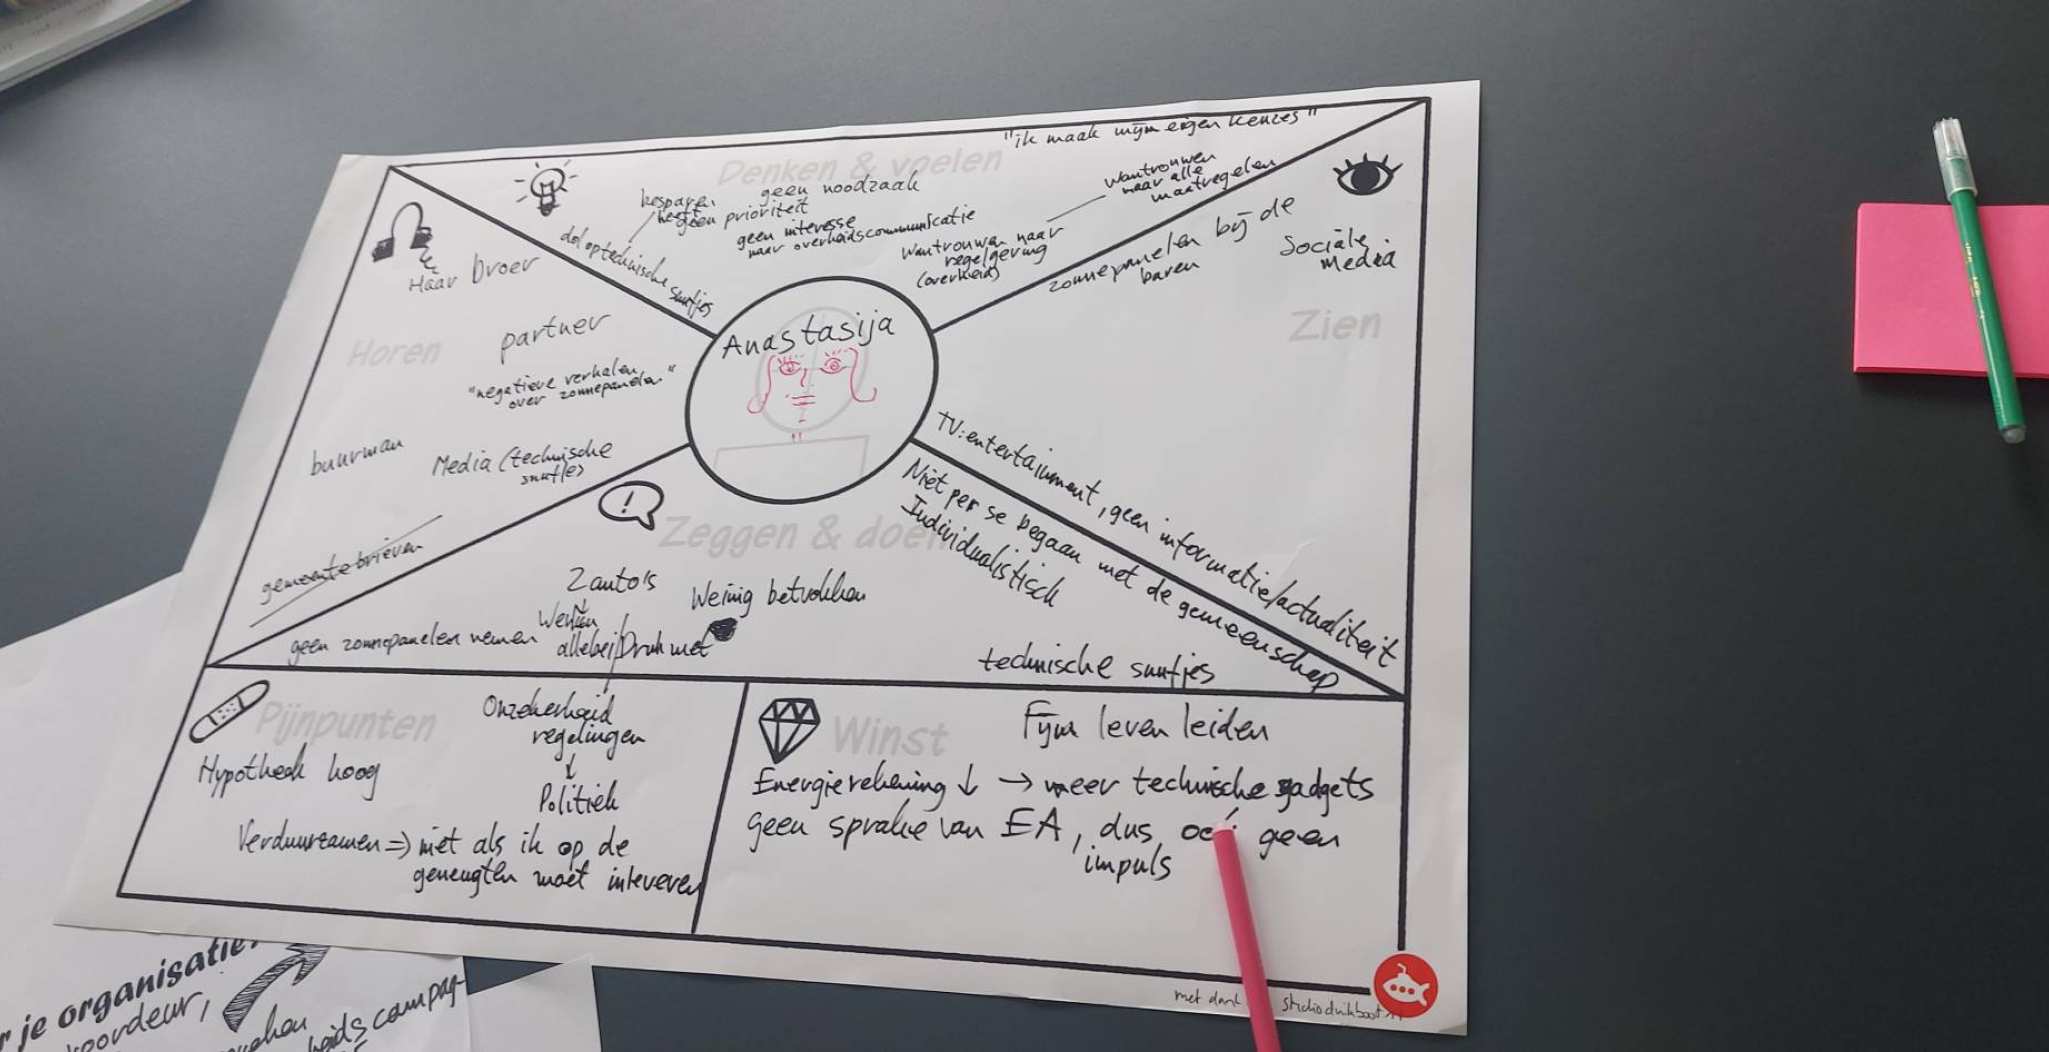 Denken & voelen
"ik maak mijn eigen keuzes"
besparen
heeft
geen prioriteit
geen noodzaak
geen interesse
naar overheidscommunicatie
dol op technische snufjes
Wantrouwen naar
regelgeving
(overheid)
Wantrouwen
naar alle
maatregelen
Horen
Haar broer
partner
"negatieve verhalen
over zonnepanelen"
buurman
Media (technische
snufjes)
gemeentebrieven
Anastasija
Zien
zonnepanelen bij de
buren
Sociale
media
TV: entertainment, geen informatie/actualiteit
Zeggen & doen
Niet per se begaan met de gemeenschap
Individualistisch
2 auto's
Werken
allebei
Druk met
Weinig betrokken
geen zonnepanelen nemen
technische snufjes
Pijnpunten
Hypotheek hoog
Onzekerheid
regelingen
↓
Politiek
Verduurzamen => niet als ik op de
geneugten moet inleveren
Winst
Fijn leven leiden
Energierekening ↓ → meer technische gadgets
geen sprake van EA, dus geen
impuls
met dank
studioduikboot
r je organisatie
koordeur,
campag-